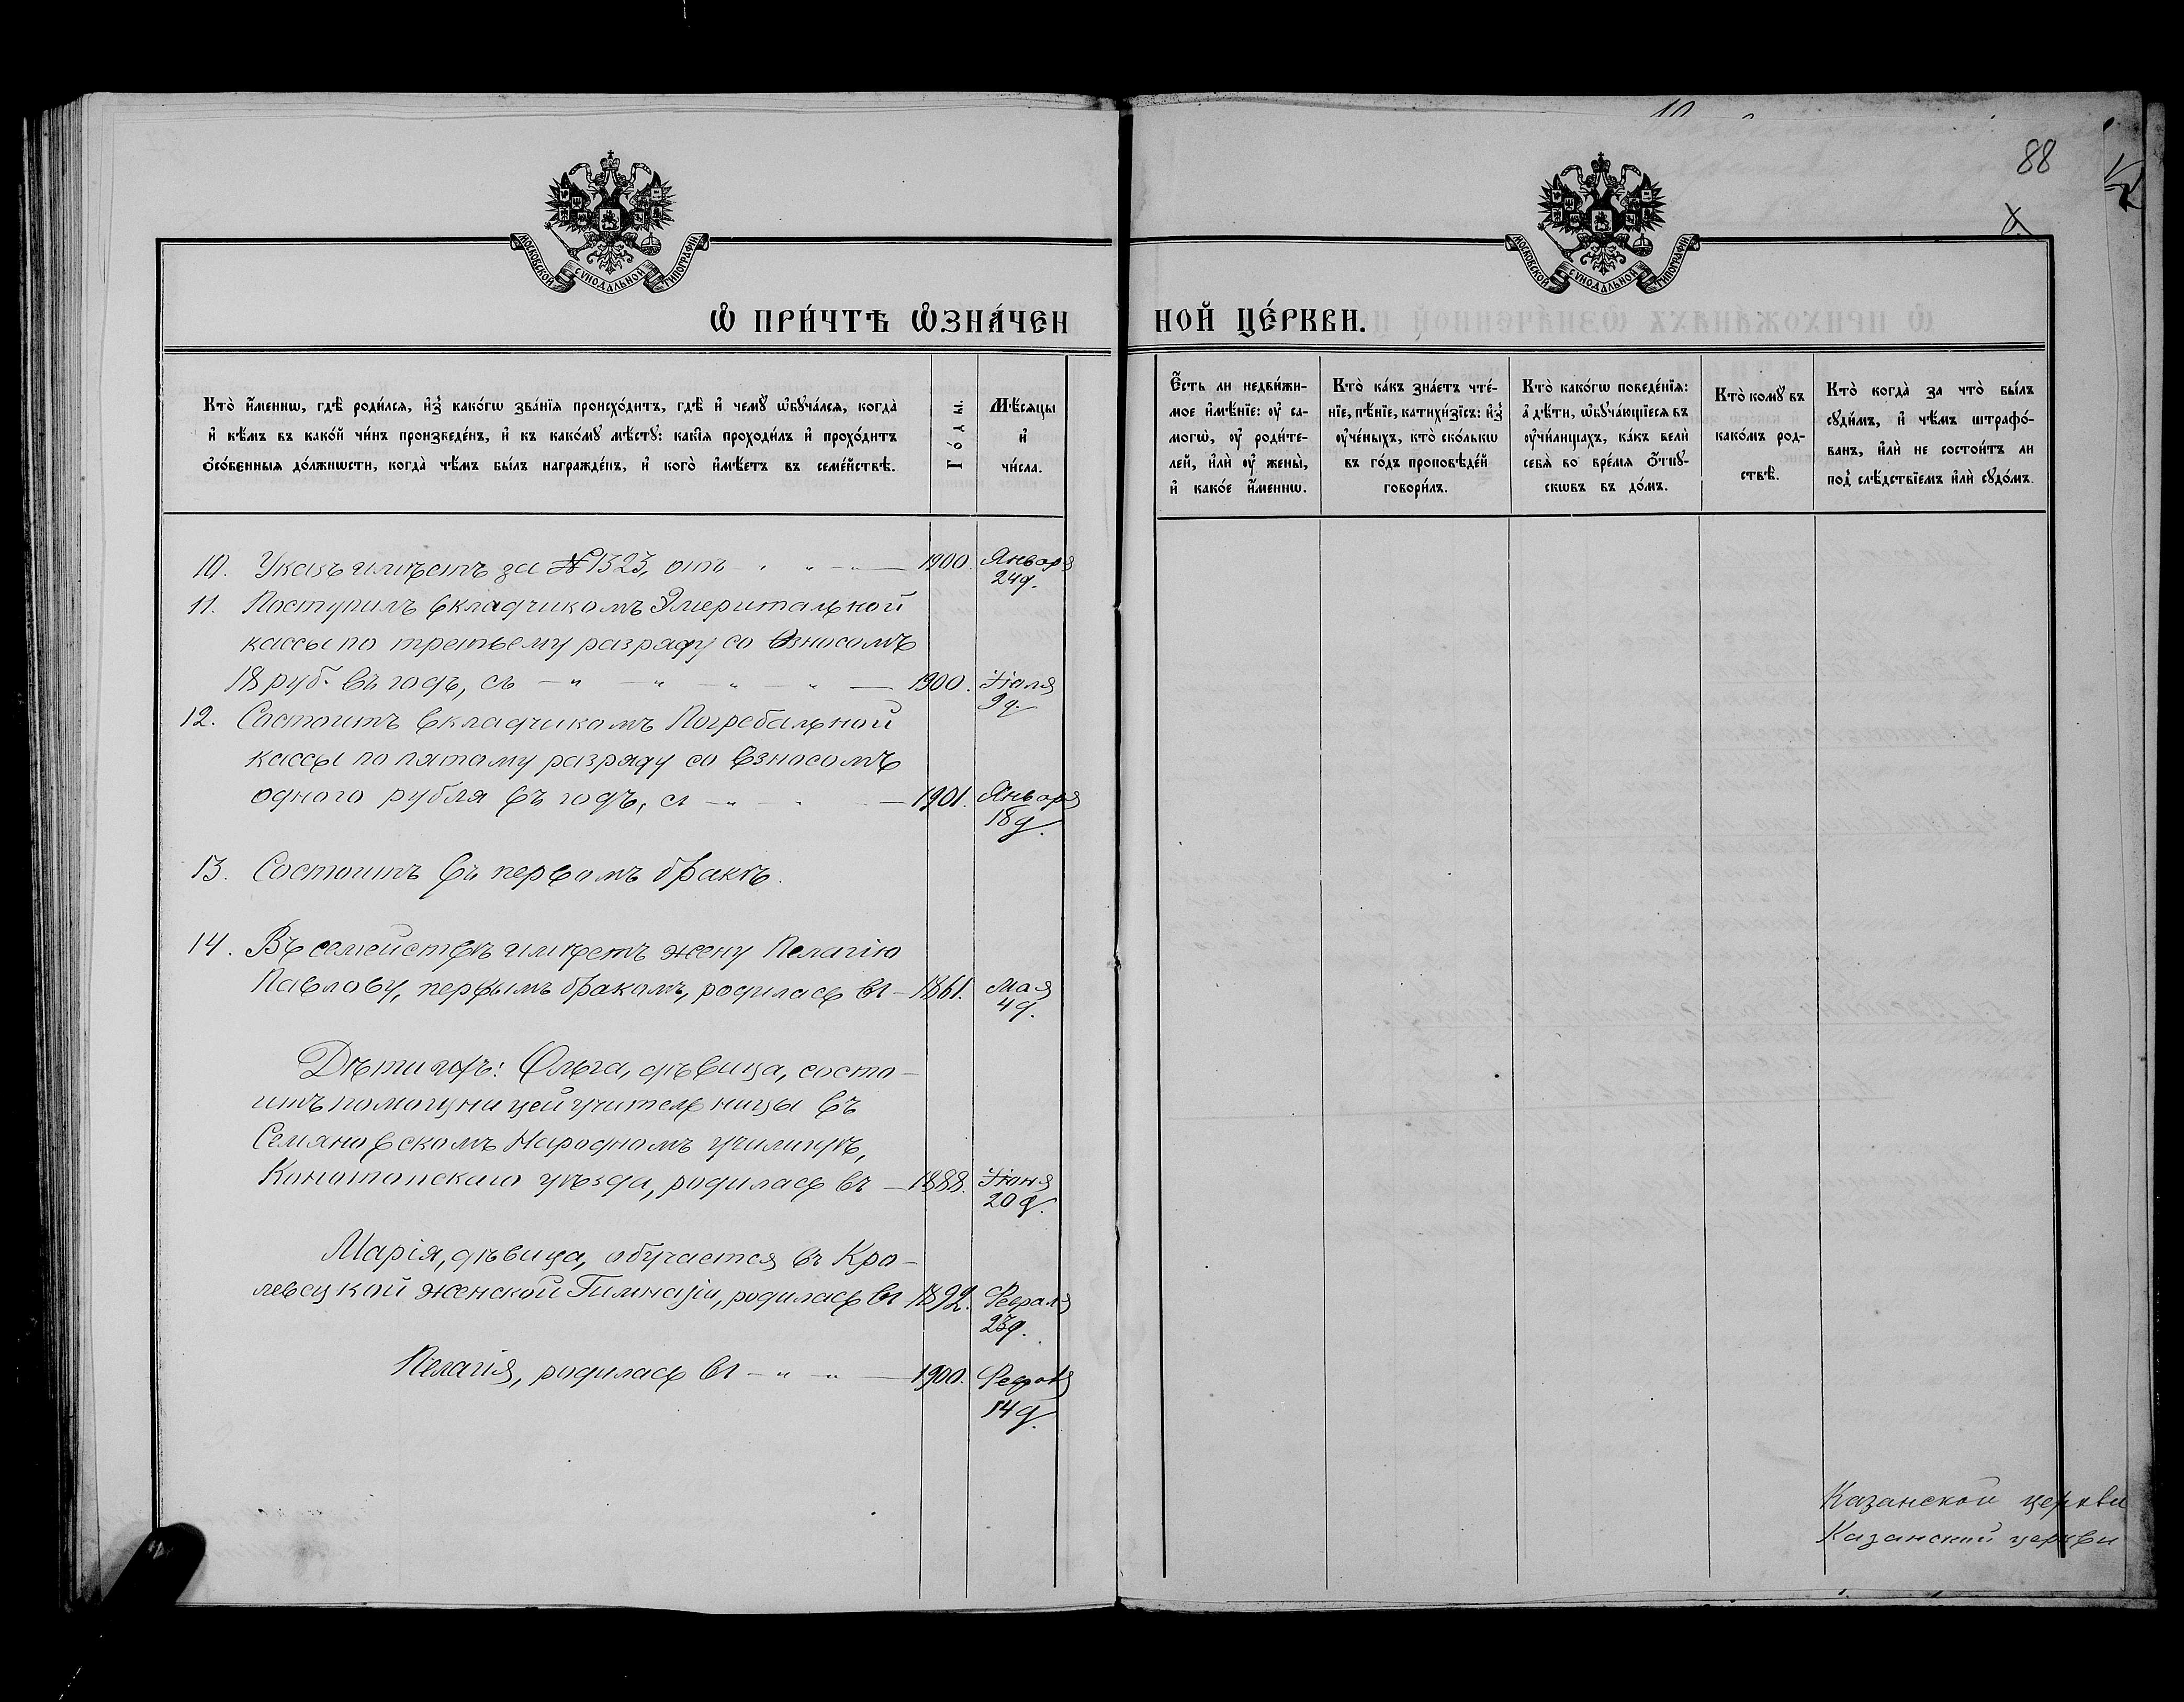 88
МОСКОВСКОЙ СѴНОДАЛЬНОЙ ТИПОГРАФІИ
МОСКОВСКОЙ СѴНОДАЛЬНОЙ ТИПОГРАФІИ
Ѡ ПРИ́ЧТѢ ѠЗНА́ЧЕН
НОЙ ЦЕ́РКВИ.
Кто̀ и҆́менно, гдѣ̀ роди́лсѧ, и҆з̾ како́гѡ зва́нїѧ происхо́дитъ, гдѣ̀ и҆ чемꙋ̀ ѡ҆бꙋча́лсѧ, когда̀
и҆ кѣ́мъ въ како́й чи́нъ произведе́нъ, и҆ къ како́мꙋ мѣ́стꙋ: каки̑ѧ проходи́лъ и҆ прохо́дитъ
ѻ҆со́бенныѧ до́лжнѡсти, когда̀ чѣ́мъ бы́лъ награжде́нъ, и҆ кого̀ и҆мѣ́етъ въ семе́йствѣ.
Го́ды.
Мѣ́сѧцы
и҆
чи́сла.
Є҆́сть ли недви́жи-
мое и҆мѣ́нїе: ᲂу҆ са-
могѡ̀, ᲂу҆ роди́те-
лей, и҆лѝ ᲂу҆ жены̀,
и҆ како́е и҆́меннѡ.
Кто̀ ка́къ зна́етъ чте́-
нїе, пѣ́нїе, катихи́зїсъ: и҆з̾
ᲂу҆че́ныхъ, кто̀ ско́лькѡ
въ го́дъ проповѣ́дей
говори́лъ.
Кто̀ како́гѡ поведе́нїѧ:
а҆ дѣ́ти, ѡ҆бꙋча́ющїесѧ въ
ᲂу҆чи́лищахъ, ка́къ велѝ
себѧ̀ во вре́мѧ ѻ҆́тпꙋ-
скѡвъ въ до́мъ.
Кто̀ комꙋ̀ въ
како́мъ род-
ствѣ̀.
Кто̀ когда̀ за что̀ бы́лъ
сꙋди́мъ, и҆ чѣ́мъ штрафо́-
ванъ, и҆лѝ не состои́тъ ли
под̾ слѣ́дствїемъ и҆лѝ сꙋдо́мъ.
10. Указъ имѣетъ за № 1323, отъ — " — " — 1900. Января 24 д.
11. Поступилъ вкладчикомъ Эмеритальной
кассы по третьему разряду со взносомъ
18 руб. въ годъ, съ — " — " — " — " — 1900. Іюля 9 д.
12. Состоитъ вкладчикомъ Погребальной
кассы по пятому разряду со взносомъ
одного рубля въ годъ, съ — " — " — 1901. Января 18 д.
13. Состоитъ въ первомъ бракѣ.
14. Въ семействѣ имѣетъ жену Пелагію
Павлову, первымъ бракомъ, родилась въ — 1861. Мая 4 д.
Дѣти ихъ: Ольга, дѣвица, состо-
итъ помощницей учительницы въ
Семяновскомъ Народномъ училищѣ,
Конотопскаго уѣзда, родилась въ — 1888. Іюня 20 д.
Марія, дѣвица, обучается въ Кро-
левецкой женской Гимназіи, родилась въ 1892. Февраля 23 д.
Пелагія, родилась въ — " — " — 1900. Февраля 14 д.
Казанской церкви
Казанской церкви